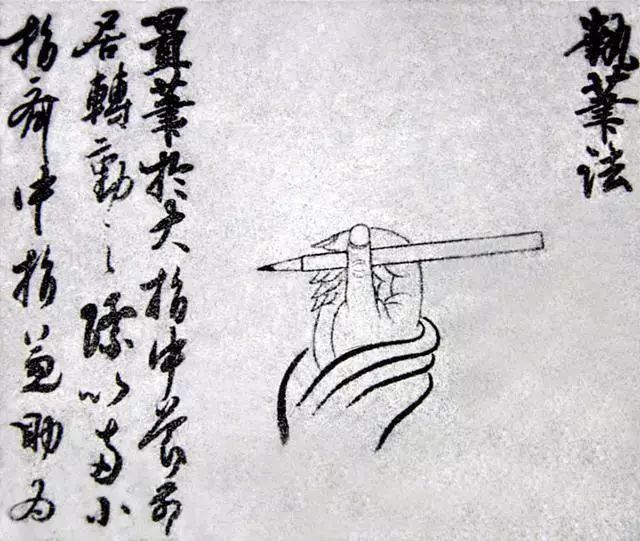 執筆法
置筆於大指中節前
居轉動之際以小
指齊中指兼助为